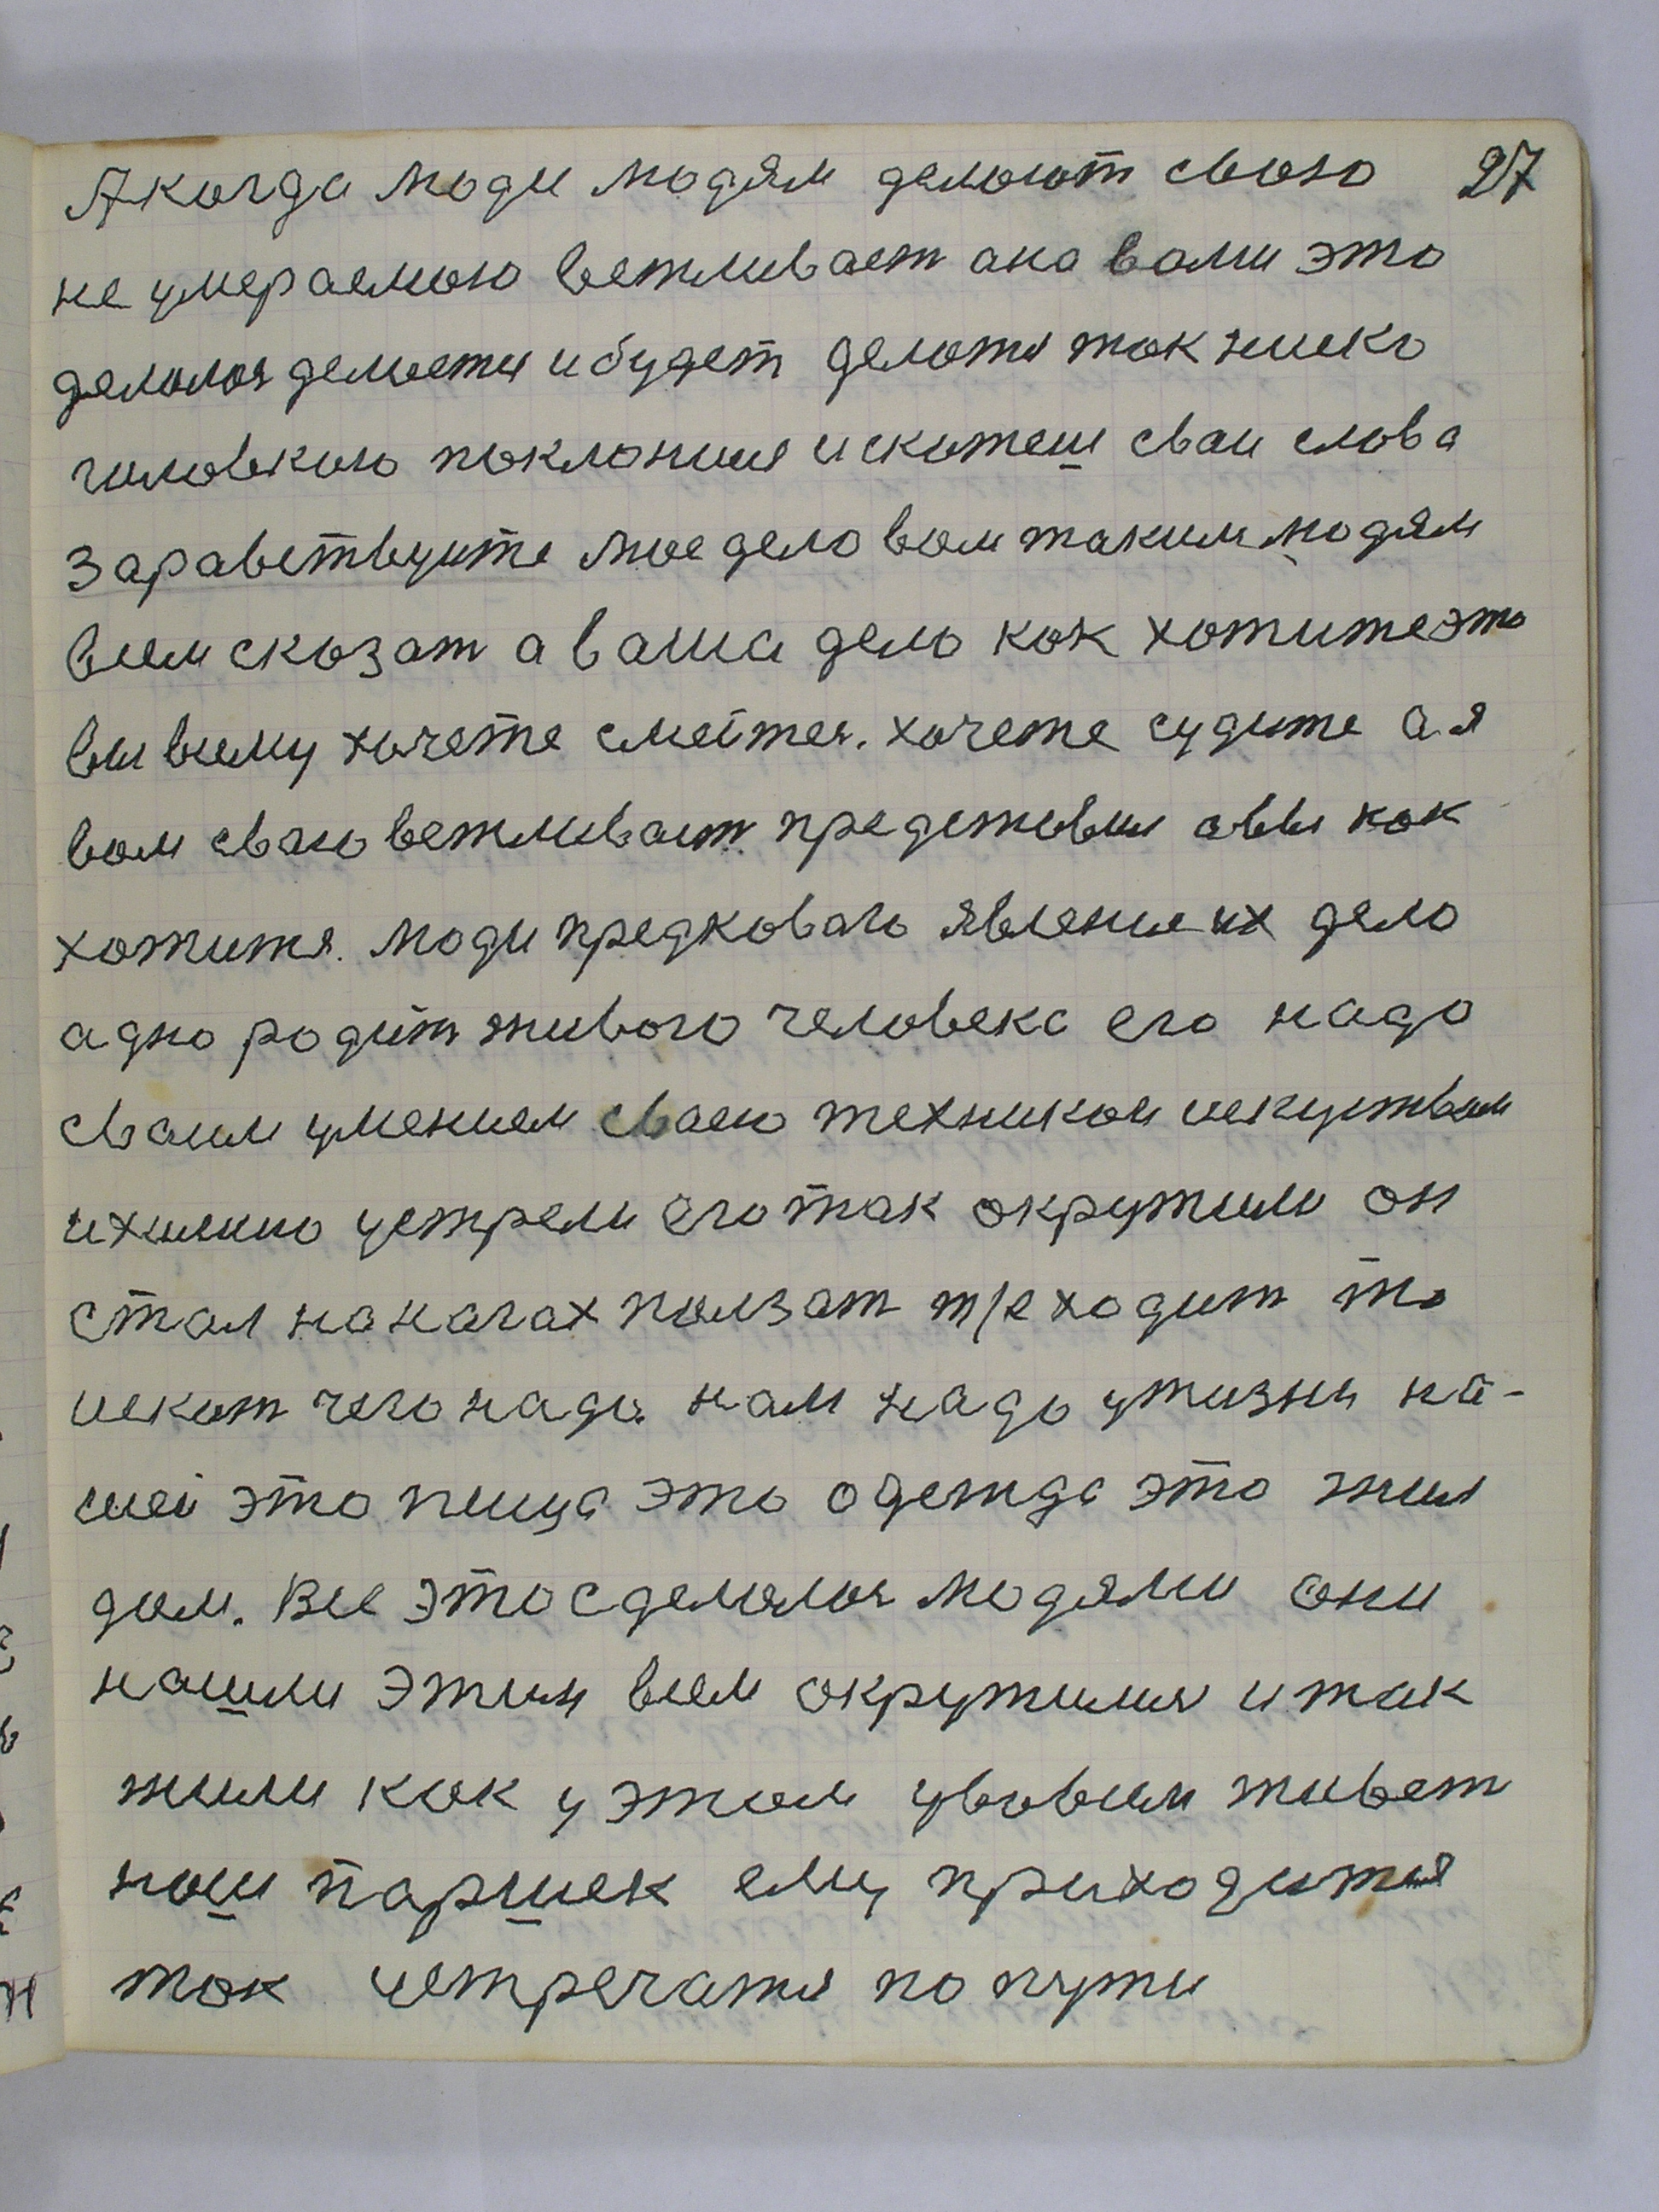 А когда люди людям делают сваю 27
не умераемаю вежливаст ана вами это
делалася делается и будет делатя так ниско
чиловекаю поклонися и скажеш сваи слова
Заравствуите мое дело вам таким людям
всем сказат а ваша дело как хотите это
вы всему хочете смеитеся. хочете судите а я
вам сваю вежливаст представил а вы как
хотитя. люди предковаго явления их дело
адно родит живого человека его надо
сваим умением сваею техникои искуствам
ихнию устрели его так окружили он
стал на нагах ползат т/е ходит то
искат чего нада. нам надо у жизни на-
шеі это пища это одежда это жил
дом. Все это сделалося людями они
нашли этим всем окружилися и так
жили как у этом условии живет
наш паршек ему приходится
так устречатя по пути